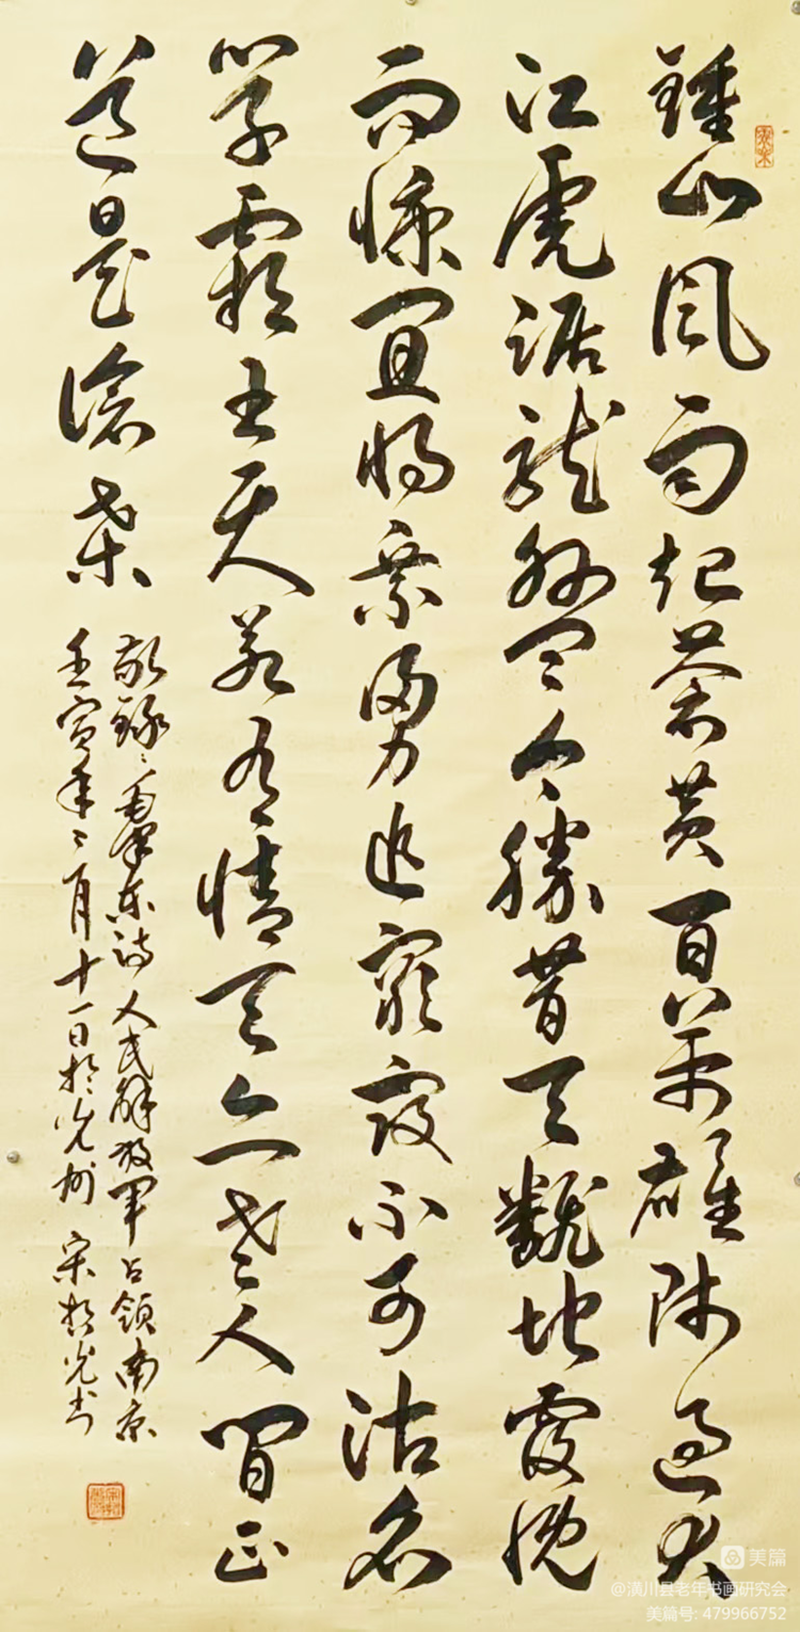 鍾山風雨起蒼黄百萬雄師過大
江虎踞龍盤今勝昔天翻地覆慨
而慷宜將剩勇追窮寇不可沽名
學霸王天若有情天亦老人間正
道是滄桑
敬録毛澤東詩人民解放軍占領南京
壬寅年二月十一日於光州 宋光书
美篇
@潢川县老年书画研究会
美篇号: 479966752